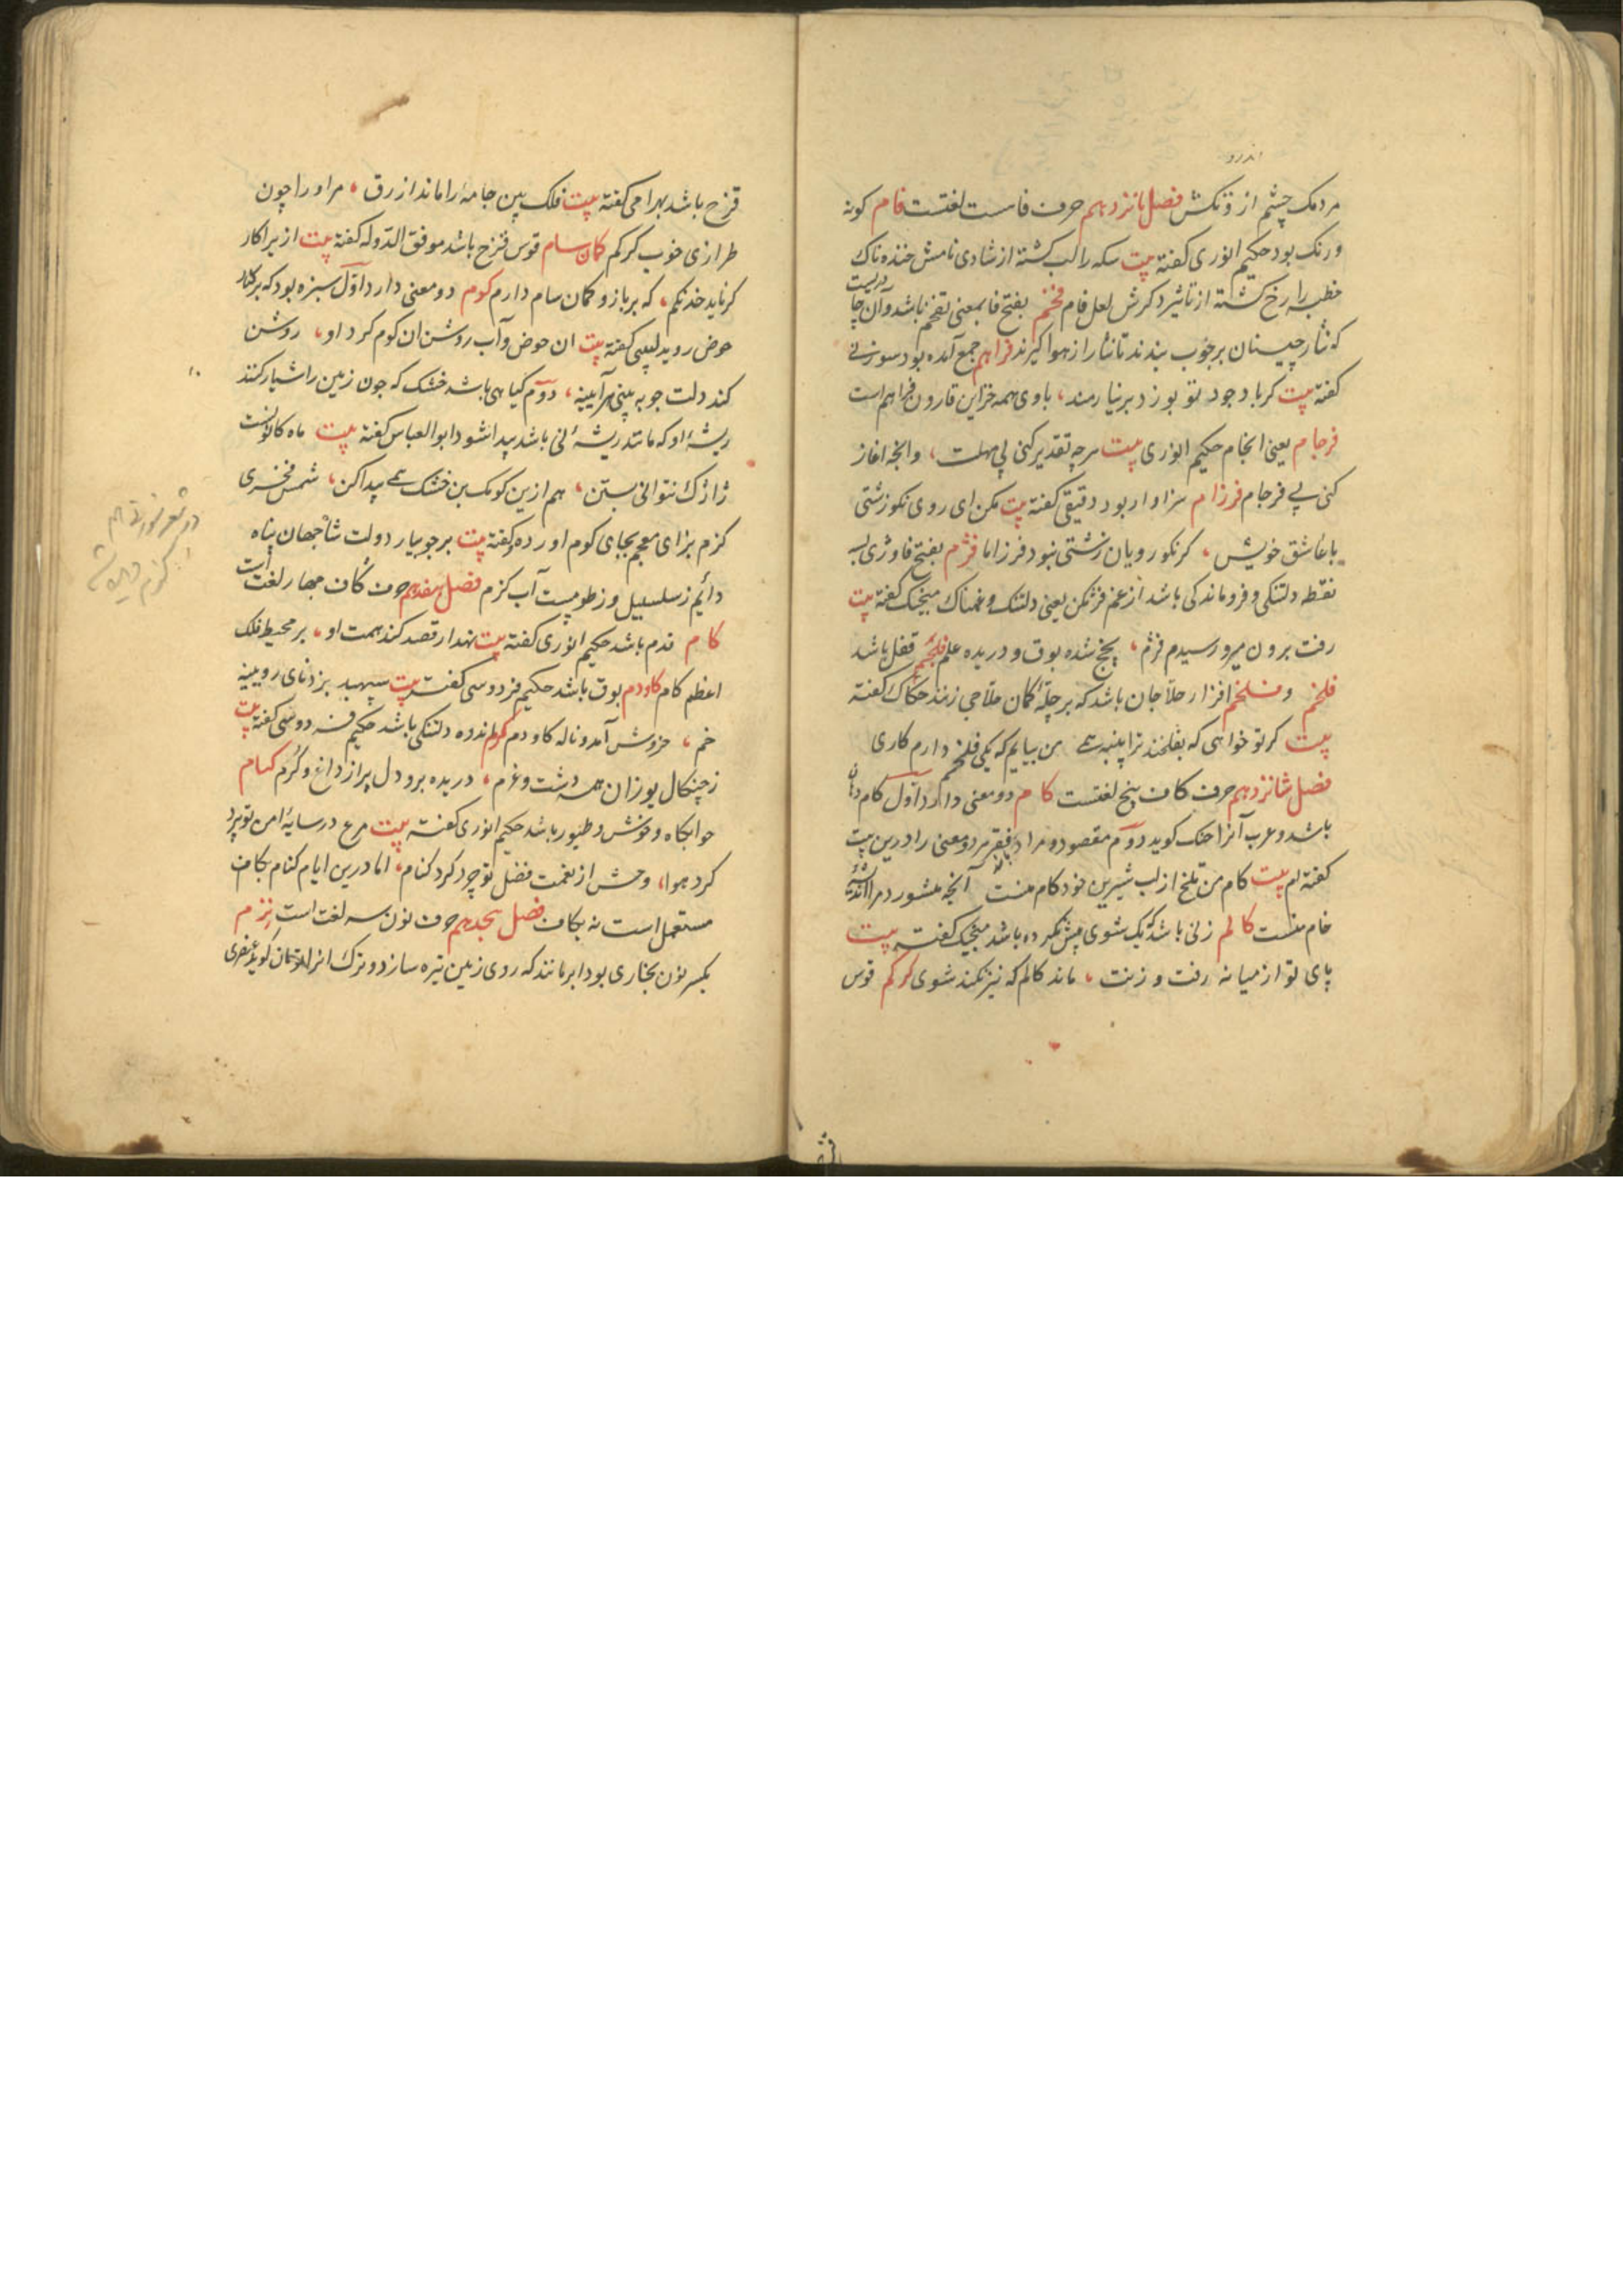 اندرو
مردمک چشم از ونکش فصل پانزدهم حرف فاست لغتست فام کونه
ورنک بود حکیم انوری کفته بیت سکه را لب کشته از شادی نامش خنده ناک
خطبه را رخ کشته از تاثیر ذکرش لعل فام فخم بفتح فا بمعنی تفخم باشد وآن چادریست
که نثار چینان برچوب بندند تا نثار از هوا کیرند فراهم جمع آمده بود سوزنی
کفته بیت کر با وجود تو بوزد برنیارمند، با وی همه خزاین قارون فراهم است
فرجام یعنی انجام حکیم انوری بیت هرچه تقدیر کنی بی مهلت، وانجه اغاز
کنی بی فرجام فرزام سزاوار بود دقیقی کفته بیت مکن ای روی نکو زشتی
با عاشق خویش، کز نکورویان زشتی نبود فرزاما فژم بفتح فا وژی بسه
نقطه دلتنکی وفروماندکی باشد از غم فژمکن یعنی دلتنک وغمناک منجیک کفته بیت
رفت برون میر رسیدم فژم، پخج شده بوق و دریده علم فلجم قفل باشد
فلخم وفلخم افزار حلاجان باشد که بر چلهٔ کمان حلاجی زنند حکاک کفته
بیت کر تو خواهی که بفلخند ترا پنبه همی من بیایم که یکی فلخم دارم کاری
فصل شانزدهم حرف کاف پنج لغتست کام دو معنی دارد اول کام دهان
باشد وعرب آنرا حنک کوید دوم مقصود ومراد فقیر هر دو معنی را درین بیت
کفته ام بیت کام من تلخ از لب شیرین خود کام منست آنچه منشور د مرا اندیشهٔ
خام منست کالم زنی باشد که یک شوی پیش کرده باشد منجیک کفته بیت
پای تو از میانه رفت و زنت، ماند کالم که نیز نکند شوی کرکم قوس
قزح باشد بهرامی کفته بیت فلک بین جامهٔ را ماند ازرق، مر او را چون
طرازی خوب کرکم کمان سام قوس قزح باشد موفق الدوله کفته بیت از بر اکار
کر ناید خدنکم، که بر بازو کمان سام دارم کوم دو معنی دارد اول سبزه بود که بر کنار
حوض روید لبیبی کفته بیت ان حوض وآب روشن ان کوم کرد او، روشن
کند دلت جو به بینی هرآیینه، دوم کیاهی باشد خشک که جون زمین را شیار کنند
ریشهٔ او که مانند ریشهٔ نی باشد پیدا شود ابوالعباس کفته بیت ماه کانونست
ژاژک نتوانی بستن، هم ازین کومک بن خشک همی پیدا کن، شمس فخری
کزم بزای معجم بجای کوم اورده وکفته بیت بر جویبار دولت شاه جهان پناه
دائم ز سلسبیل وز طوبیست آب کزم فصل هفدهم حرف کاف چهار لغتست
کام قدم باشد حکیم انوری کفته بیت نهد ار قصد کند همت او، بر محیط فلک
اعظم کام کاودم بوق باشد حکیم فردوسی کفته بیت سپهبد بزد نای رویینه
خم، خروش آمد و ناله کاودم کرم اندوه دلتنکی باشد حکیم فردوسی کفته بیت
ز چنکال یوزان همه دشت و غرم، دریده برو دل پر از داغ و کرم کنام
خوابکاه وحوش وطیور باشد حکیم انوری کفته بیت مرغ در سایهٔ امن تو پرد
کرد هوا، وحش از نعمت فضل تو چرد کرد کنام، اما درین ایام کنام بکاف
مستعمل است نه بکاف فصل هجدهم حرف نون سه لغت است نزم
بکسر نون بخاری بود ابر مانند که روی زمین تیره سازد و ترک انرا تومان کوید عنصری